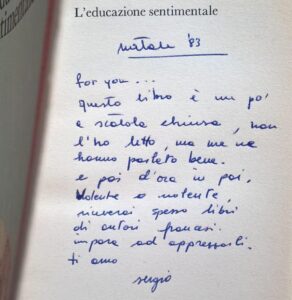 L'educazione sentimentale
natale '83
for you...
questo libro è un po'
a scatola chiusa, non
l'ho letto, ma me ne
hanno parlato bene.
e poi d'ora in poi,
volente o nolente,
riceverai spesso libri
di autori francesi.
impara ad apprezzarli.
ti amo
sergio